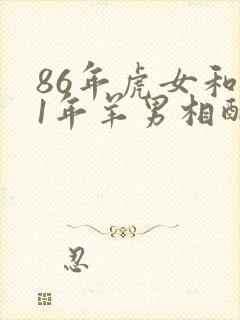 86年虎女和
1年羊男相配
忍